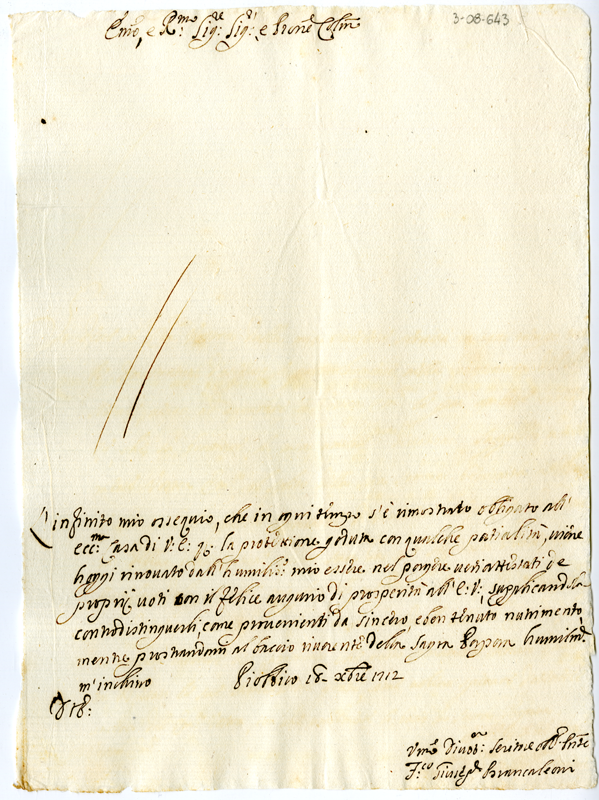 3-08-643
Em̃o, e R.mo Sig.re Sig.r e Pron̄e Col.mo
L'infinito mio ossequio, che in ogni tempo s'è rimostrato obligato all'
ecc.ma Casa di V: E: p. la protezione goduta con qualche parzialità, viene
hoggi rinovato dall'humiliss.o mio essere nel porgere veri attestati de
proprij voti con il felice augurio di prosperità all'E: V: supplicandola
contradistinguerli, come provenienti da sincero, e ben tenuto nutrimento,
mentre prostrandomi al baccio riverente della Sagra Porpora humilm.te
m'inchino Piobbico 18 Xbre 1712
D: V: E:
Um.o Divot.: Serv.re Obl.
F.co Brancaleoni